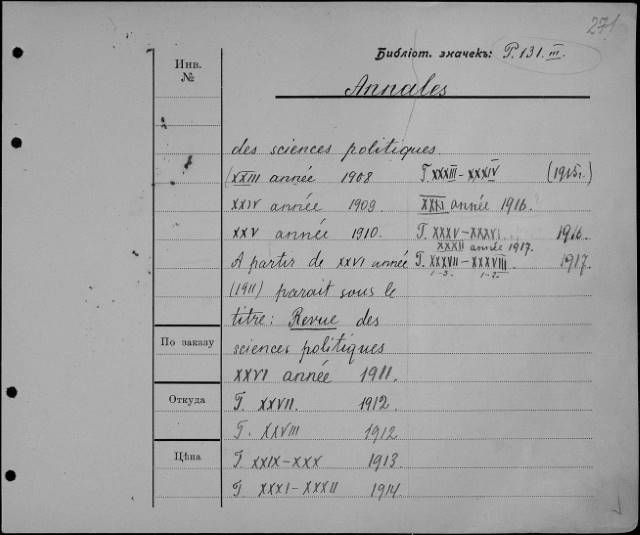 271
Библіот. значекъ: P. 131. III.
Инв.
№
Annales
des sciences politiques
(XXIII année 1908 T. XXXIII-XXXIV (1915г.)
XXIV année 1909. XXXI année 1916.
XXV année 1910. T. XXXV-XXXVI. 1916.
XXXII année 1917.
A partir de XXVI année T. XXXVII-XXXVIII 1917.
1-3. 1-2.
(1911) parait sous le
titre: Revue des
По заказу
sciences politiques
XXVI année 1911.
Откуда
T. XXVII. 1912.
T. XXVIII 1912
Цѣна
T. XXIX-XXX 1913.
T XXXI-XXXII 1914